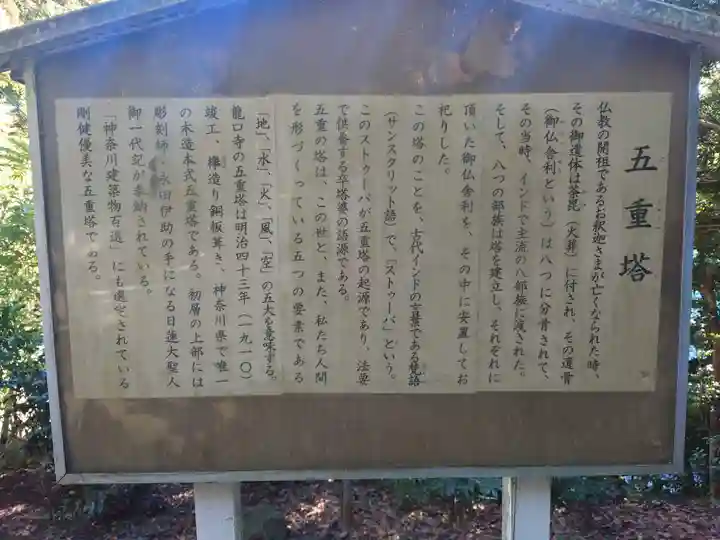 五重塔
仏教の開祖であるお釈迦さまが亡くなられた時、
その御遺体は荼毘(火葬)に付され、その遺骨
(御仏舎利という)は八つに分骨されて、
その当時、インドで主流の八部族に渡された。
そして、八つの部族は塔を建立し、それぞれに
頂いた御仏舎利を、その中に安置してお
祀りした。
この塔のことを、古代インドの言葉である梵語
(サンスクリット語)で、「ストゥーパ」という。
このストゥーパが五重塔の起源であり、法要
で供養する卒塔婆の語源である。
五重の塔は、この世と、また、私たち人間
を形づくっている五つの要素である
「地」、「水」、「火」、「風」、「空」の五大を意味する。
龍口寺の五重塔は明治四十三年(一九一〇)
竣工、欅造り銅板葺き、神奈川県で唯一
の木造本式五重塔である。初層の上部には
彫刻師・永田伊助の手になる日蓮大聖人
御一代記が奉納されている。
「神奈川建築物百選」にも選定されている
剛健優美な五重塔である。